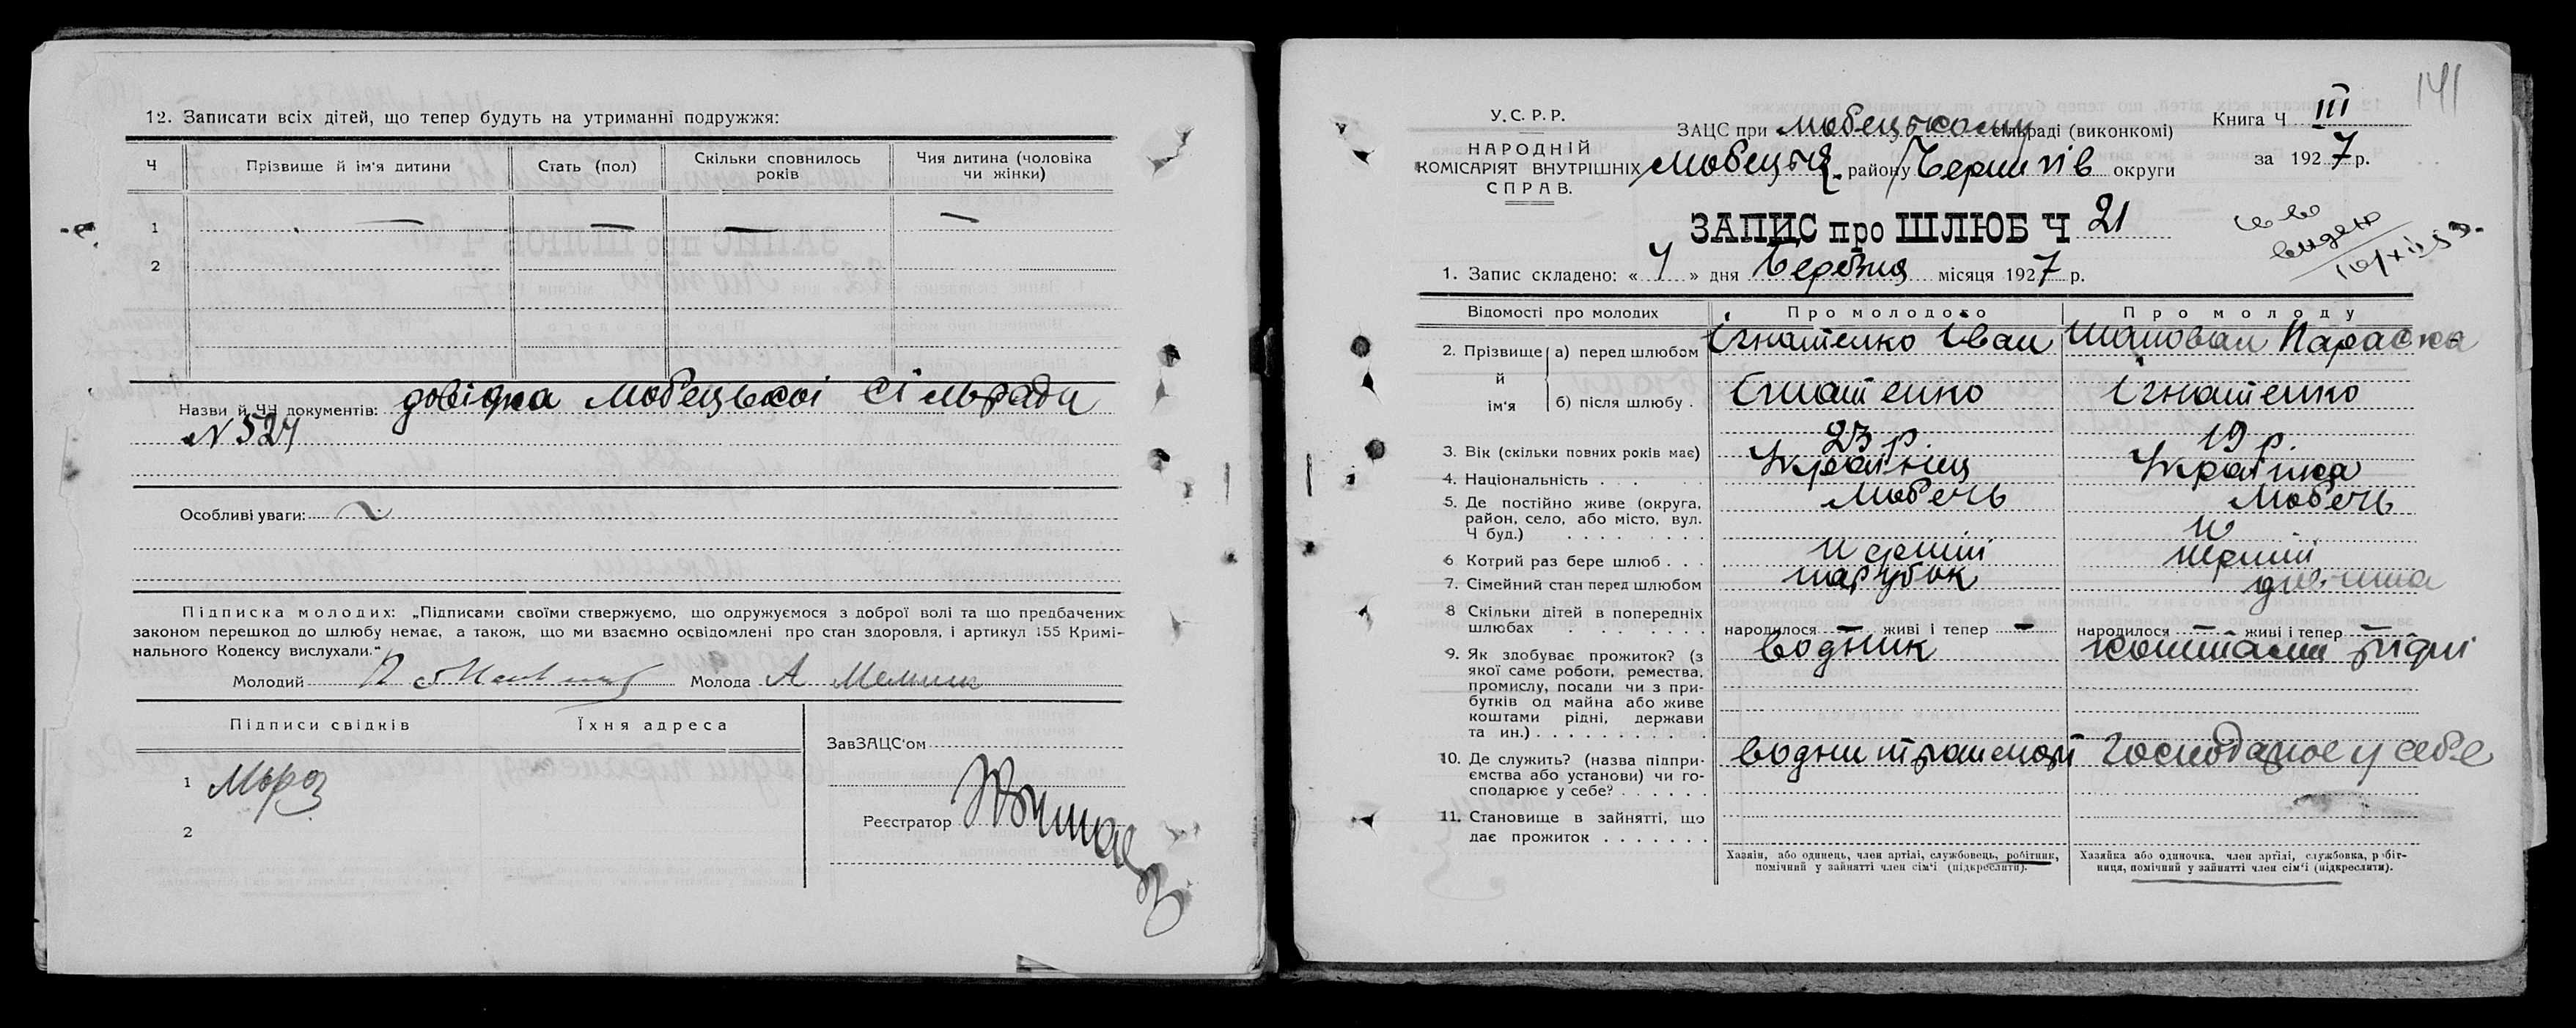 12. Записати всіх дітей, що тепер будуть на утриманні подружжя:
Ч
Прізвище й ім'я дитини
Стать (пол)
Скільки сповнилось років
Чия дитина (чоловіка чи жінки)
1 — — — —
2
Назви й ЧЧ документів: довідка Любецької Сільради
N 527
Особливі уваги:
Підписка молодих: „Підписами своїми стверджуємо, що одружуємося з доброї волі та що предбачених
законом перешкод до шлюбу немає, а також, що ми взаємно освідомлені про стан здоровля, і артикул 155 Кримі-
нального Кодексу вислухали."
Молодий Молода
Підписи свідків Їхня адреса
1 Мороз
2
ЗавЗАЦС'ом
Реєстратор
141
У.С.Р.Р.
НАРОДНІЙ
КОМІСАРІЯТ ВНУТРІШНІХ
СПРАВ.
ЗАЦС при Любецькому сільраді (виконкомі)
Любецьк. району Чернигів округи
Книга Ч III
за 1927 р.
ЗАПИС про ШЛЮБ Ч 21
св-во
видено
1. Запис складено: « » дня Березня місяця 1927 р.
Відомості про молодих
Про молодого
Про молоду
2. Прізвище й ім'я
а) перед шлюбом Ігнатенко Іван Шаповал Параска
б) після шлюбу . Ігнатенко Ігнатенко
3. Вік (скільки повних років має) 23 р. 19 р.
4. Національність . . . Українец Українка
5. Де постійно живе (округа, Любечь Любечь
район, село, або місто, вул.
Ч буд.) . . . . . . . .
6 Котрий раз бере шлюб . . . перший перший
7. Сімейний стан перед шлюбом парубок
8 Скільки дітей в попередніх
шлюбах . . . . . . . народилося живі і тепер — народилося — живі і тепер —
9. Як здобуває прожиток? (з водник коштами рідні
якої саме роботи, ремества,
промислу, посади чи з при-
бутків од майна або живе
коштами рідні, держави
та ин.) . . . . . . . . .
10. Де служить? (назва підпри- водни транспорт Господарює у себе
ємства або установи) чи го-
сподарює у себе? . . . . . .
11. Становище в зайнятті, що
дає прожиток . . . . . . .
Хазяїн, або одинець, член артілі, службовець, робітник,
помічний у зайнятті член сім'ї (підкреслити).
Хазяйка або одиночка, член артілі, службовка, робіт-
ниця, помічний у зайнятті член сім'ї (підкреслити).